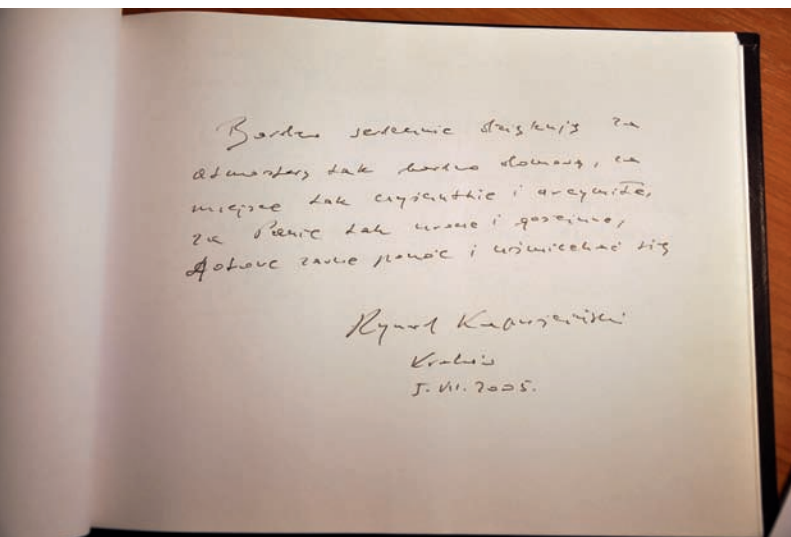 Bardzo serdecznie dziękuję za
atmosferę tak bardzo domową, za
miejsce tak czyściutkie i arcymiłe,
za Panie tak urocze i gościnne,
gotowe zawsze pomóc i uśmiechać się
Ryszard Kapuściński
Kraków
5.VII.2005.